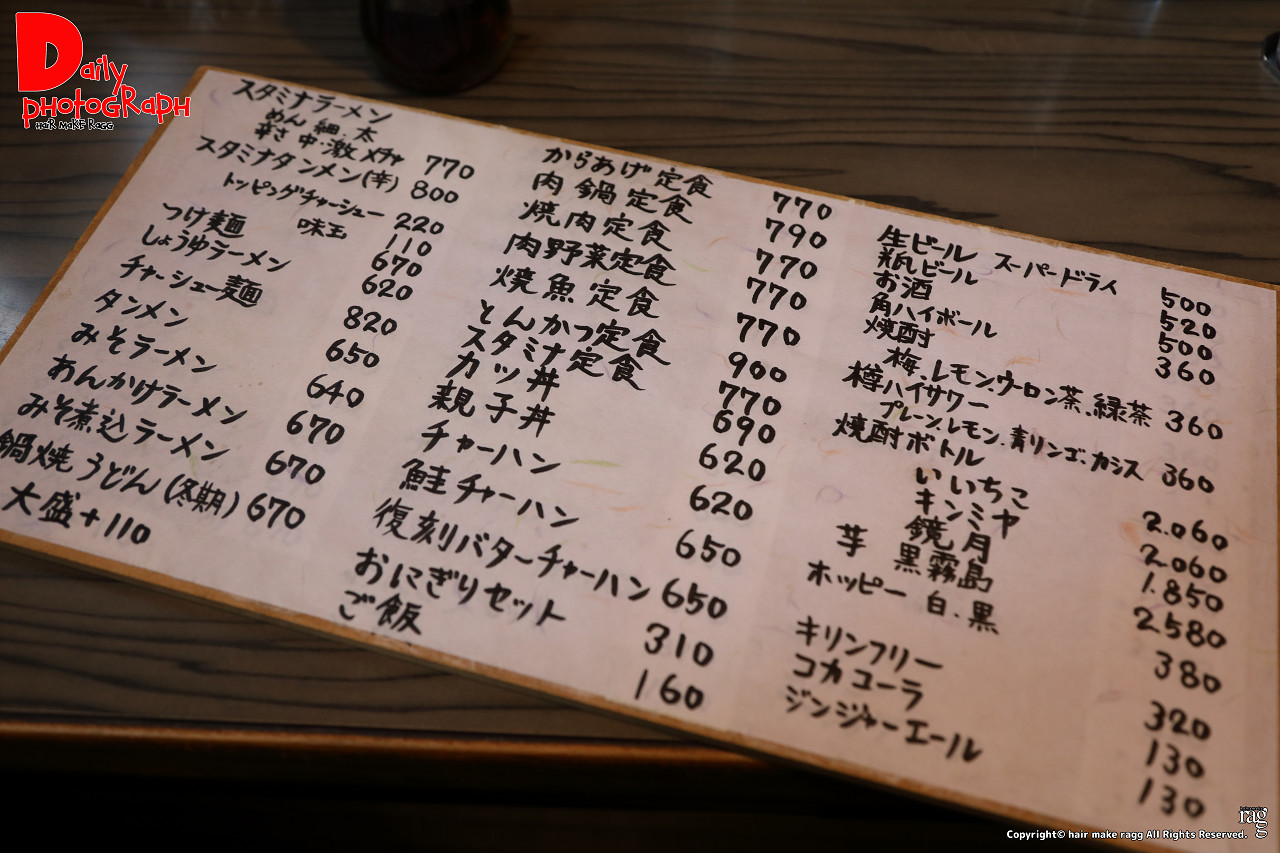 Daily
PHOTOGRAPH
HAIR MAKE RAGG
スタミナラーメン
めん 細.太
辛さ 中・激 メチャ 770
スタミナタンメン(辛) 800
トッピングチャーシュー 220
味玉 110
つけ麺 670
しょうゆラーメン 620
チャーシュー麺 820
タンメン 650
みそラーメン 640
あんかけラーメン 670
みそ煮込ラーメン 670
鍋焼うどん(冬期) 670
大盛+110
からあげ定食 770
肉鍋定食 790
焼肉定食 770
肉野菜定食 770
焼魚定食 770
とんかつ定食 900
スタミナ定食 770
カツ丼 690
親子丼 620
チャーハン 620
鮭チャーハン 650
復刻バターチャーハン 650
おにぎりセット 310
ご飯 160
生ビール スーパードライ 500
瓶ビール 520
お酒 500
角ハイボール 360
焼酎
梅、レモン、ウーロン茶、緑茶 360
樽ハイサワー
プレーン、レモン、青リンゴ、カシス 360
焼酎ボトル
いいちこ 2.060
キンミヤ 2.060
鏡月 1.850
芋 黒霧島 2.580
ホッピー 白、黒 380
キリンフリー 320
コカコーラ 130
ジンジャーエール 130
hairmake
ragg
Copyright© hair make ragg All Rights Reserved.